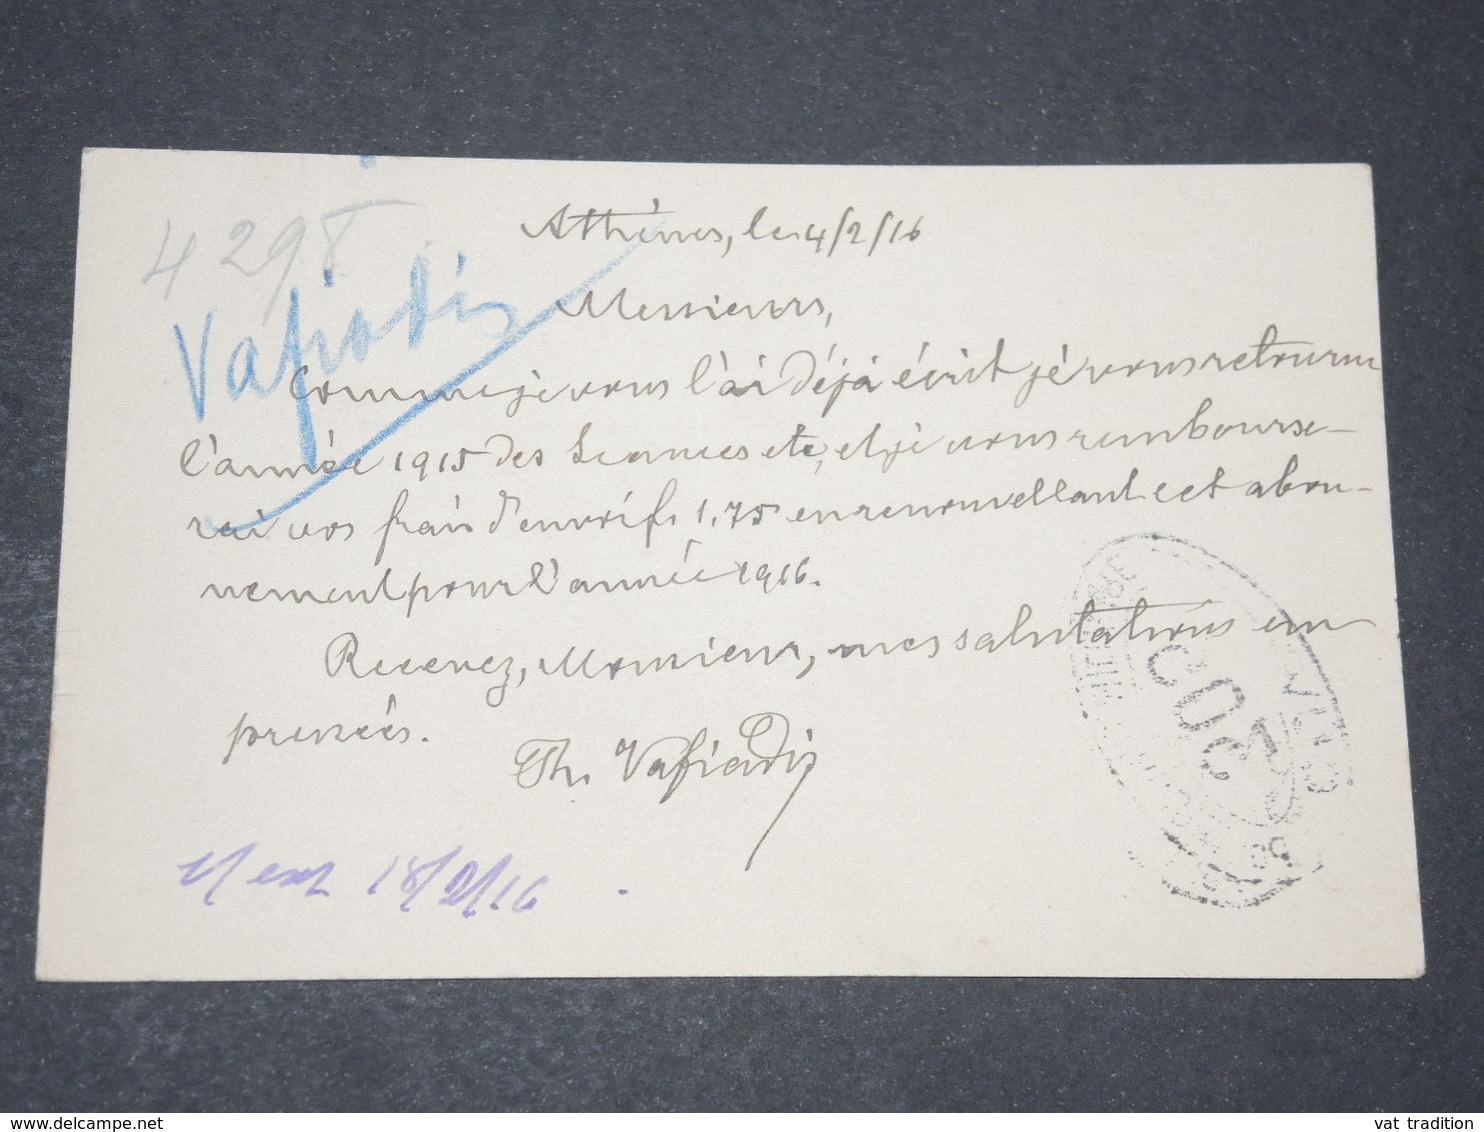 4298
Vafiadis
Athènes, le 4/2/16
Messieurs,
Comme je vous l'ai déjà écrit je vous retourne
l'année 1915 des Séances etc, et je vous rembourse-
rai vos frais d'envoi f. 1,75 en renouvellant cet abon-
nement pour l'année 1916.
Recevez, Monsieur, mes salutations em
pressées.
Th. Vafiadis
18/2/16
www.delcampe.net
vat tradition